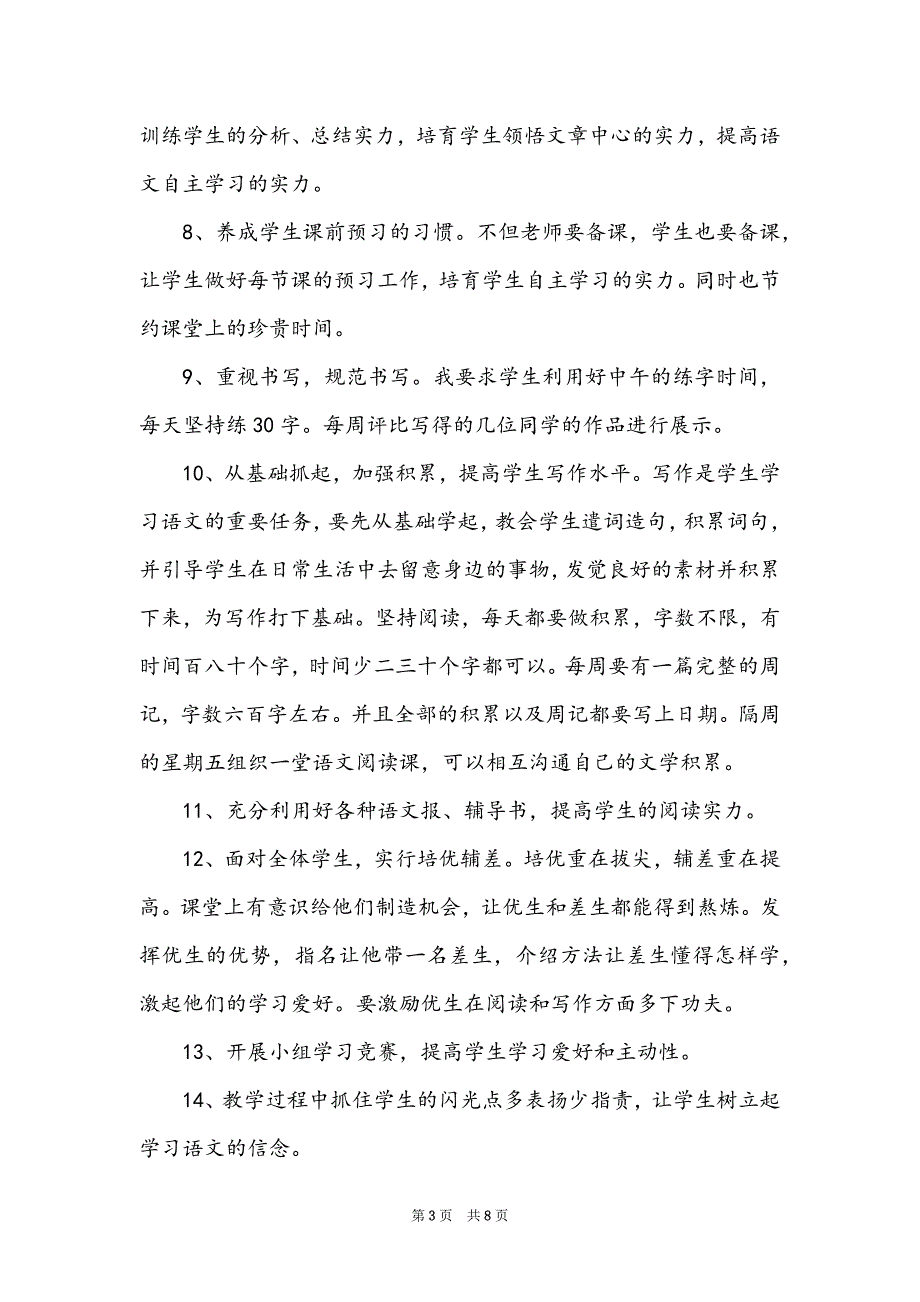 训练学生的分析、总结实力，培育学生领悟文章中心的实力，提高语
文自主学习的实力。
8、养成学生课前预习的习惯。不但老师要备课，学生也要备课，
让学生做好每节课的预习工作，培育学生自主学习的实力。同时也节
约课堂上的珍贵时间。
9、重视书写，规范书写。我要求学生利用好中午的练字时间，
每天坚持练30字。每周评比写得的几位同学的作品进行展示。
10、从基础抓起，加强积累，提高学生写作水平。写作是学生学
习语文的重要任务，要先从基础学起，教会学生遣词造句，积累词句，
并引导学生在日常生活中去留意身边的事物，发觉良好的素材并积累
下来，为写作打下基础。坚持阅读，每天都要做积累，字数不限，有
时间百八十个字，时间少二三十个字都可以。每周要有一篇完整的周
记，字数六百字左右。并且全部的积累以及周记都要写上日期。隔周
的星期五组织一堂语文阅读课，可以相互沟通自己的文学积累。
11、充分利用好各种语文报、辅导书，提高学生的阅读实力。
12、面对全体学生，实行培优辅差。培优重在拔尖，辅差重在提
高。课堂上有意识给他们制造机会，让优生和差生都能得到熬炼。发
挥优生的优势，指名让他带一名差生，介绍方法让差生懂得怎样学，
激起他们的学习爱好。要激励优生在阅读和写作方面多下功夫。
13、开展小组学习竞赛，提高学生学习爱好和主动性。
14、教学过程中抓住学生的闪光点多表扬少指责，让学生树立起
学习语文的信念。
第3页 共8页